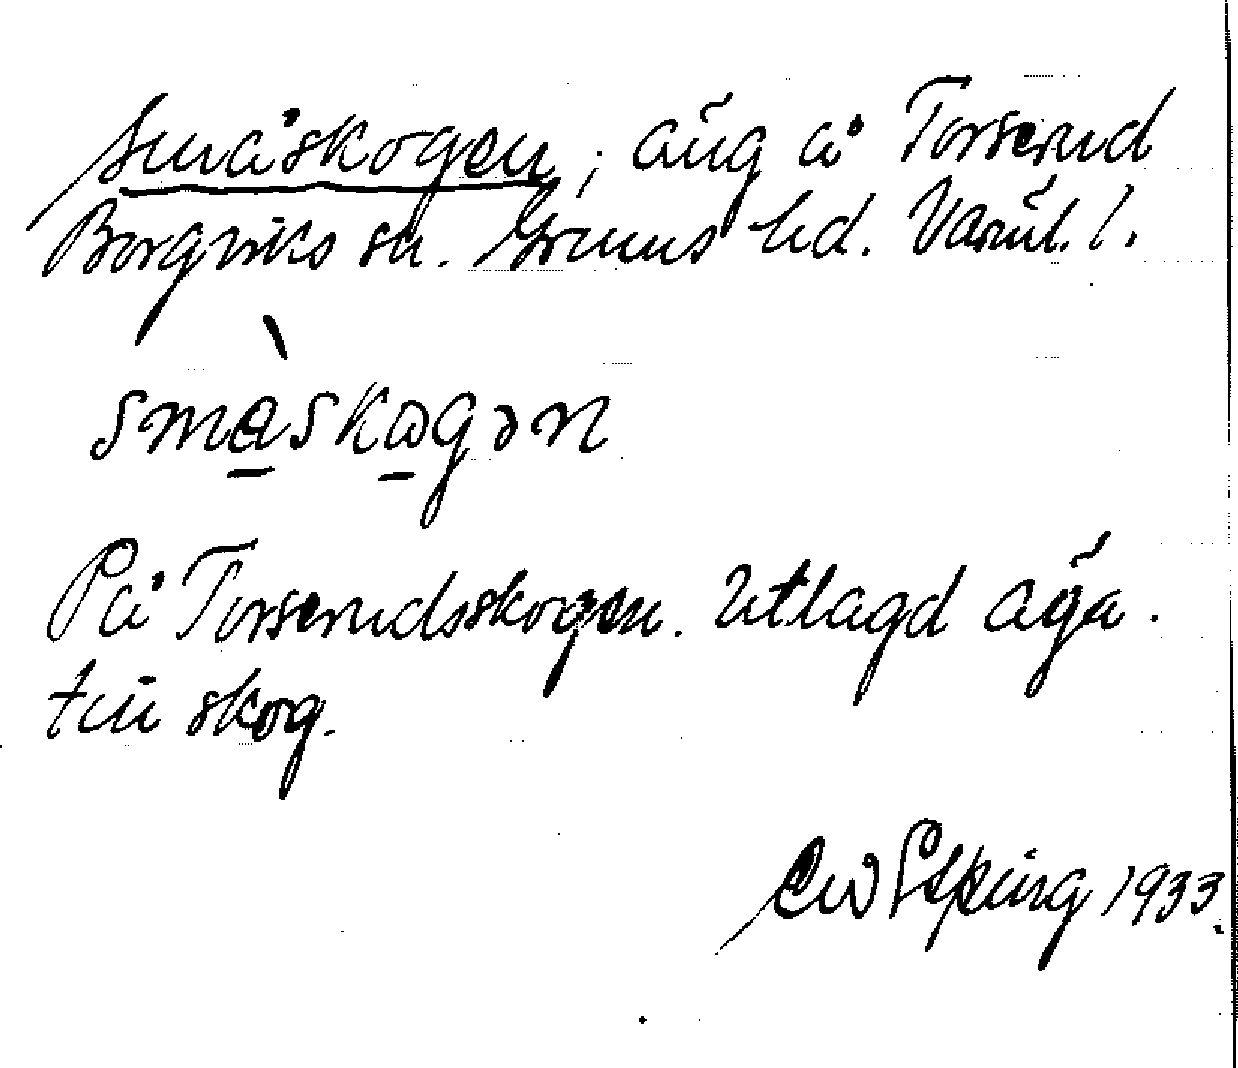 Småskogen, äng å Torserud
Borgviks sn. Grums hd. Värml. l.
småskogən
På Torserudsskogen. Utlagd äga
till skog.
1933.